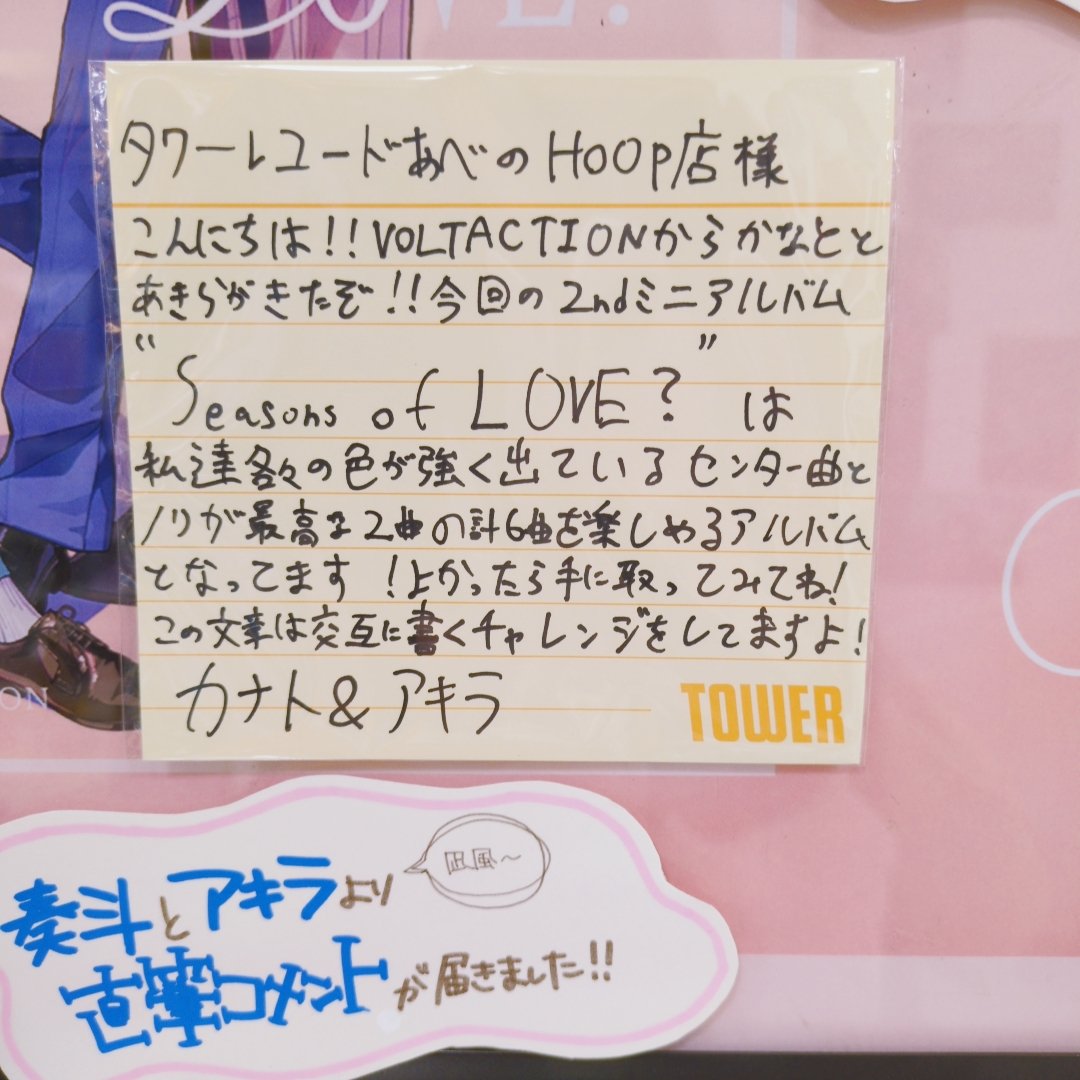 LOVE?
タワーレコードあべのHOOP店様
こんにちは!!VOLTACTIONからかなとと
あきらがきたぞ!!今回の2ndミニアルバム
"Seasons of LOVE?"は
私達各々の色が強く出ているセンター曲と
ノリが最高な2曲の計6曲を楽しめるアルバム
となってます!よかったら手に取ってみてね!
この文章は交互に書くチャレンジをしてますよ!
カナト&アキラ
TOWER
ON
凪風～
奏斗とアキラより
直筆コメントが届きました!!